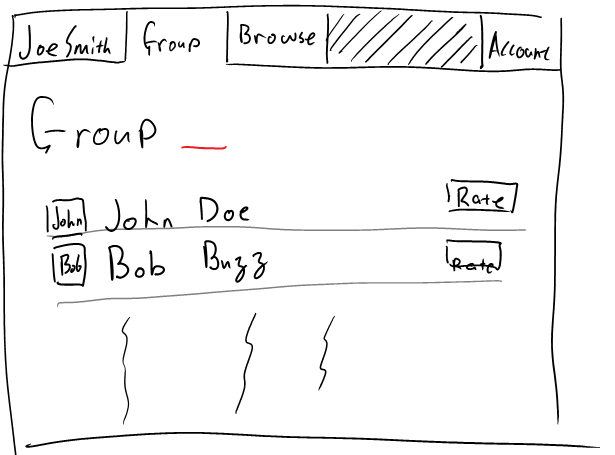 Joe Smith Group Browse Account
Group
John John Doe Rate
Bob Bob Buzz Rate